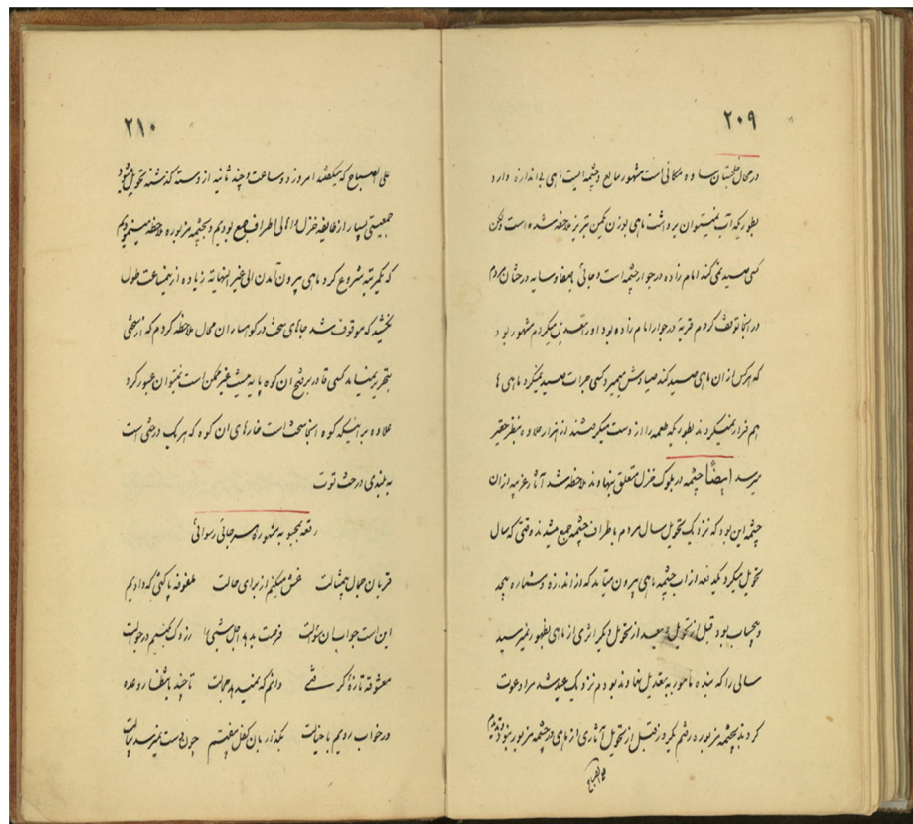 ۲۰۹
در محال خلجستان ساوه مکانی است مشهور مابع و چشمه ایست ماهی بی اندازه دارد
بطوریکه آب نمیتوان برداشت ماهی بوزن یکمن تبریز ملاحظه شده است ولکن
کسی صید نمی کند امام زاده در جوار چشمه است و جائی باصفا و سایه درختان مردم
در انجا توقف کردم قریهٔ در جوار امام زاده بود اورا تعدیل میکردم مشهور بود
که هرکس از ان ماهی صید کند صیادش میمیرد کسی جرات صید نمیکرد ماهی ها
هم فرار نمیکردند بطوریکه طعمه را از دست میگرفتند از هزار علاوه بنظر حقیر
میرسد ایضاً چشمه در بلوک خزل متعلق بنهاوند ملاحظه شد آثار غریبه از ان
چشمه این بود که نزدیک تحویل سال مردم باطراف چشمه جمع میشدند وقتی که سال
تحویل میکرد یکدفعه از اب چشمه ماهی بیرون میآمد که از اندازه و شماره بیحد
و بیحساب بود قبل از تحویل و بعد از تحویل دیگر اثری از ماهی بظهور نمیرسید
سالی را که بنده مامور به تعدیل نهاوند بودم نزدیک عید شد مرا دعوت
کردند بچشمه مزبوره رفتم یکروز قبل از تحویل آثاری از ماهی در چشمه مزبور نبود
علی الصباح
۲۱۰
علی الصباح که میگفتند امروز دو ساعت و چند ثانیه از دسته گذشته تحویل میشود
جمعیتی بسیار از طایفه خزل و اهالی اطراف جمع بودیم و بچشمه مزبوره ملاحظه مینمودیم
که یکمرتبه شروع کرد ماهی بیرون آمدن الی غیر النهایه زیاده از نیمساعت طول
نکشید که موقوف شد جاهای سخت در کوهساران محال ملاحظه کردم که از سختی
بتحریر نمیاید کسی قادر بر فتح ان کوه پایه نیست غیر ممکن است نمیتوان عبور کرد
علاوه بر اینکه کوه انجا سخت است خارهای ان کوه که هریک درختی است
به بلندی درخت توت
رقعه محبوبه مشهوره هرجائی رسوائی
قربان جمال بیمثالت غش میکنم از برای حالت ملفوفه پاکتی که دادیم
این است جواب ان سؤالت فرصت بدهد اجل شبی را در خوالت
معشوقه تازهٔ گرفتی دانم که نمیدهد مجالت تا چند بانتظار وعده
در خواب رویم با خیالت بگذار بان کفل چون دست نمیرسد